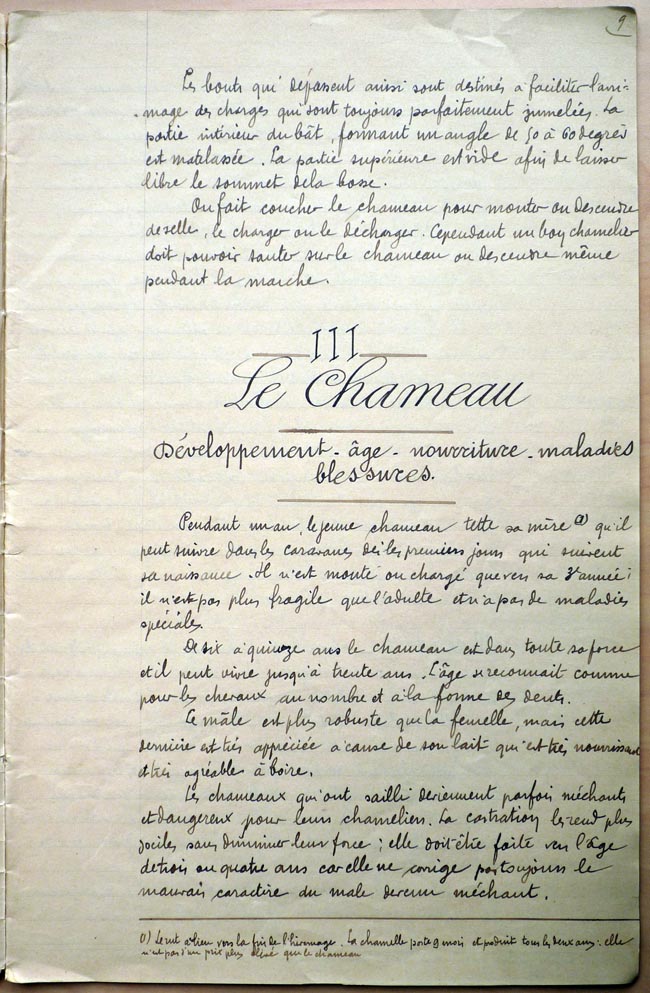 9
Les bouts qui dépassent ainsi sont destinés à faciliter l'arri-
mage des charges qui sont toujours parfaitement jumelées. La
partie intérieur du bât, formant un angle de 50 à 60 degrés
est matelassée. La partie supérieure est vide afin de laisser
libre le sommet de la bosse.
On fait coucher le chameau pour monter ou descendre
de selle, le charger ou le décharger. Cependant un bon chamelier
doit pouvoir sauter sur le chameau ou descendre même
pendant la marche.
III
Le Chameau
Développement - âge - nourriture - maladies
blessures.
Pendant un an, le jeune chameau tette sa mère (1) qu'il
peut suivre dans les caravanes dès les premiers jours qui suivent
sa naissance. Il n'est monté ou chargé que vers sa 3e année;
il n'est pas plus fragile que l'adulte et n'a pas de maladies
spéciales.
De six à quinze ans le chameau est dans toute sa force
et il peut vivre jusqu'à trente ans. L'âge se reconnait comme
pour les chevaux au nombre et à la forme des dents.
Le mâle est plus robuste que la femelle, mais cette
dernière est très appréciée à cause de son lait qui est très nourrissant
et très agréable à boire.
Les chameaux qui ont sailli deviennent parfois méchants
et dangereux pour leurs chameliers. La castration les rend plus
dociles sans diminuer leur force; elle doit être faite vers l'âge
de trois ou quatre ans car elle ne corrige pas toujours le
mauvais caractère du male devenu méchant.
(1) Le rut a lieu vers la fin de l'hivernage. La chamelle porte 9 mois et produit tous les deux ans: elle
n'est pas d'un prix plus élevé que le chameau